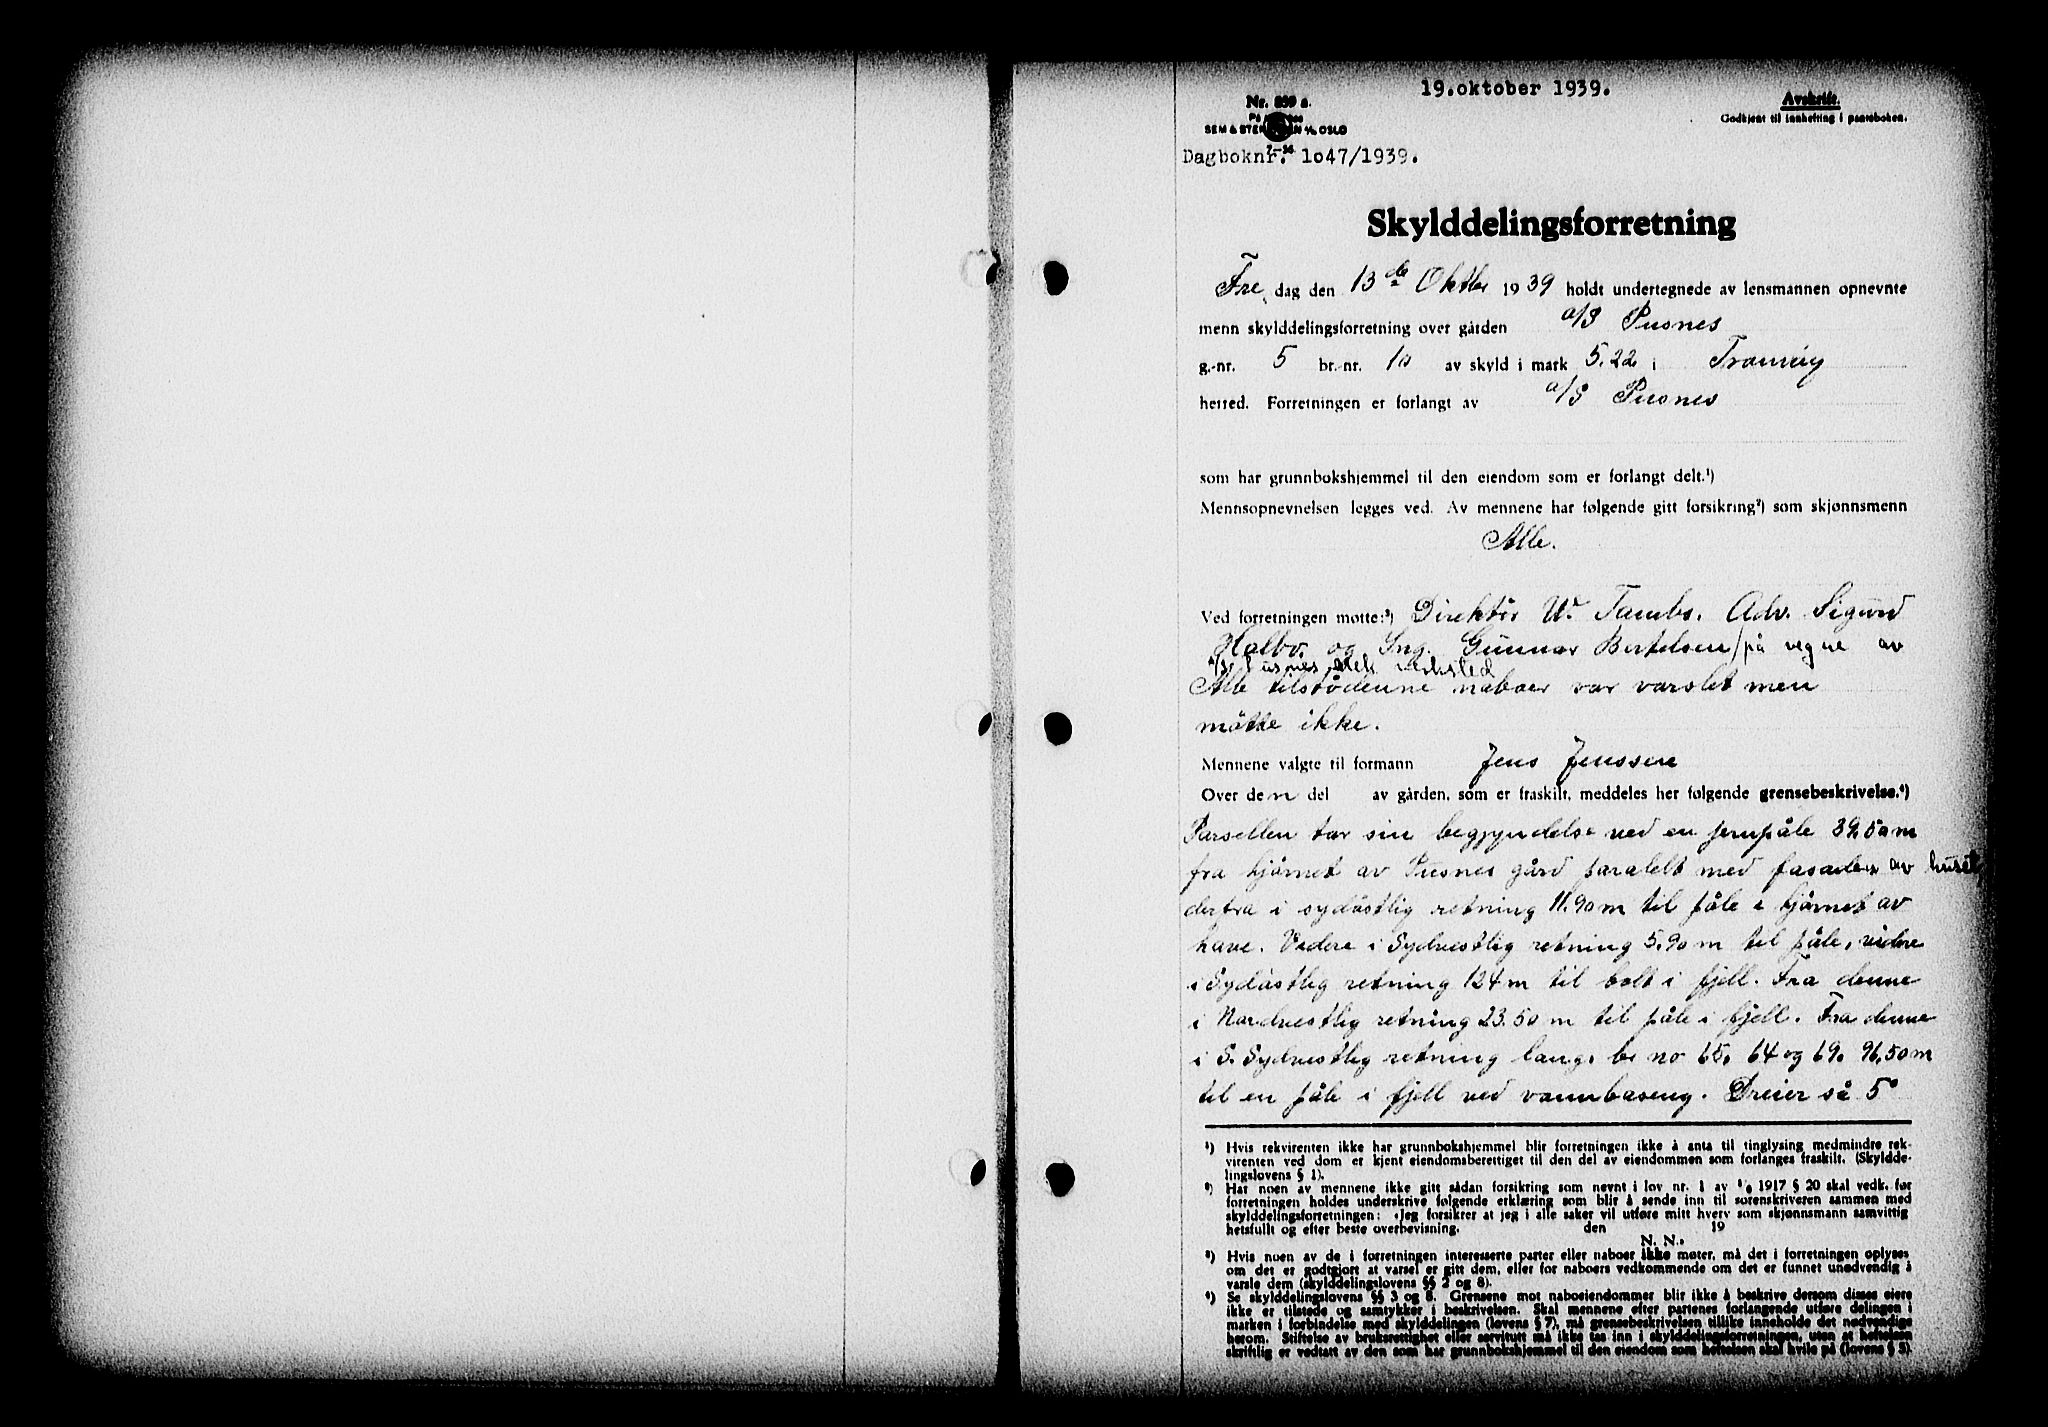 19.oktober 1939.
Nr. 859 a.
SEM & STENERSEN A/S OSLO
Avskrift.
Godkjent til innhefting i panteboken.
Dagboknr. 1o47/1939.
Skylddelingsforretning
Fre dag den 13de Oktbr 1939 holdt undertegnede av lensmannen opnevnte
menn skylddelingsforretning over gården a/S Pusnes
g.-nr. 5 br.-nr. 10 av skyld i mark 5.22 i Tromöy
herred. Forretningen er forlangt av a/S Pusnes
som har grunnbokshjemmel til den eiendom som er forlangt delt.¹)
Mennsopnevnelsen legges ved. Av mennene har følgende gitt forsikring²) som skjønnsmenn
Alle.
Ved forretningen møtte:³) Direktör W. Tambs. Adv. Sigurd
Halbo. og Ing. Gunnar Bertelsen/på vegne av
a/S Pusnes mek verksted
Alle tilstödenne naboer var varslet men
mötte ikke.
Mennene valgte til formann Jens Jenssen
Over den del av gården, som er fraskilt, meddeles her følgende grensebeskrivelse.⁴)
Parsellen tar sin begyndelse ved en jernpåle 39,50 m
fra hjörnet av Pusnes gård paralelt med fasaden av huset,
derfra i sydöstlig retning 11.90 m til påle i hjörnet av
have. Videre i Sydvestlig retning 5.90 m til påle, videre
i Sydöstlig retning 124 m til bolt i fjell. Fra denne
i Nordvestlig retning 23.50 m til påle i fjell. Fra denne
i S. Sydvestlig retning langs br no 65. 64 og 69. 96,50 m
til en påle i fjell ved vannbaseng. Dreier så 5°
¹) Hvis rekvirenten ikke har grunnbokshjemmel blir forretningen ikke å anta til tinglysing medmindre rek-
virenten ved dom er kjent eiendomsberettiget til den del av eiendommen som forlanges fraskilt. (Skyldde-
lingslovens § 1).
²) Har noen av mennene ikke gitt sådan forsikring som nevnt i lov nr. 1 av 1/6 1917 § 20 skal vedk. før
forretningen holdes underskrive følgende erklæring som blir å sende inn til sorenskriveren sammen med
skylddelingsforretningen: «Jeg forsikrer at jeg i alle saker vil utføre mitt hverv som skjønnsmann samvittig
hetsfullt og efter beste overbevisning. den 19
N. N.»
³) Hvis noen av de i forretningen interesserte parter eller naboer ikke møter, må det i forretningen oplyses
om det er godtgjort at varsel er gitt dem, eller for naboers vedkommende om det er funnet unødvendig å
varsle dem (skylddelingslovens §§ 2 og 8).
⁴) Se skylddelingslovens §§ 3 og 8. Grensene mot naboeiendommer blir ikke å beskrive dersom disses eiere
ikke er tilstede og samtykker i beskrivelsen. Skal mennene efter partenes forlangende utføre delingen i
marken i forbindelse med skylddelingen (lovens § 7), må grensebeskrivelsen tillike inneholde det nødvendige
herom. Stiftelse av bruksrettighet eller servitutt må ikke tas inn i skylddelingsforretningen, uten at heftelsen
skriftlig er vedtatt av den som har grunnbokshjemmel til den eiendom som heftelsen skal hvile på (lovens § 5).